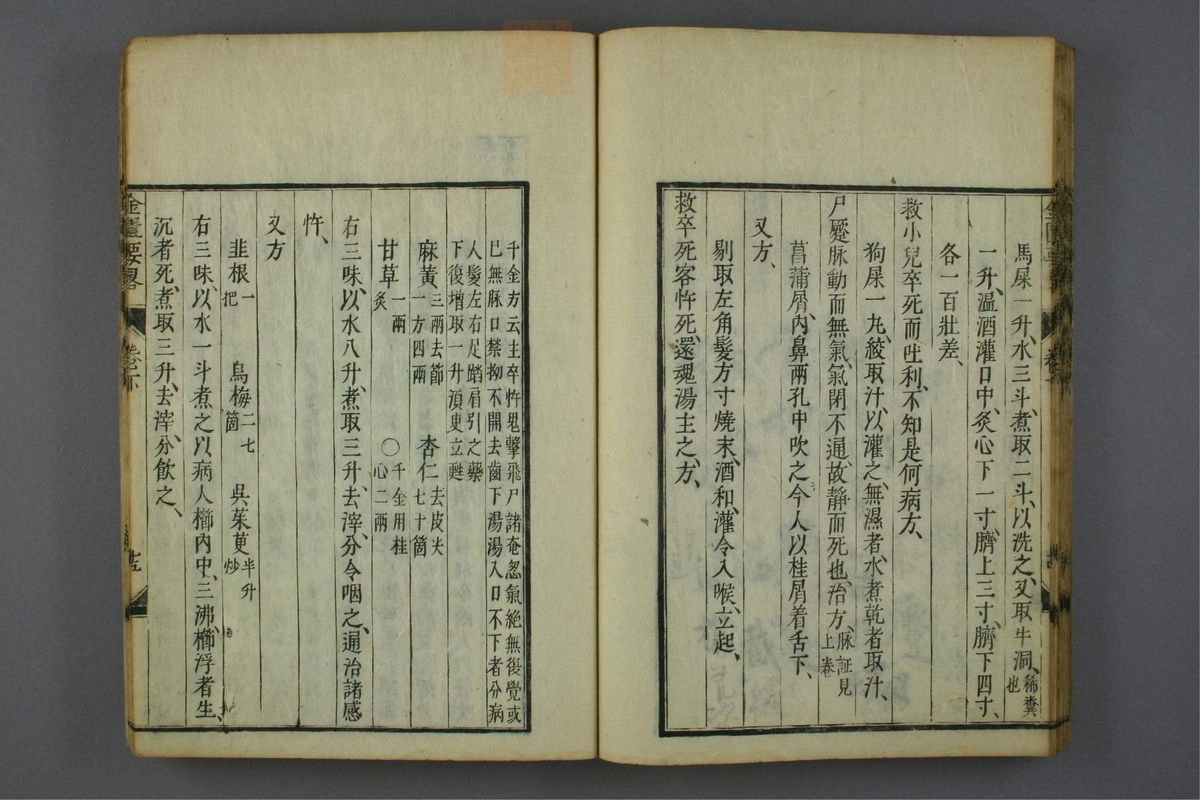 馬屎一升、水三斗、煮取二斗、以洗之、又取牛洞、稀糞也
一升、溫酒灌口中、灸心下一寸、臍上三寸、臍下四寸、
各一百壯差、
救小兒卒死而吐利、不知是何病方、
狗屎一丸、絞取汁、以灌之、無濕者、水煮乾者取汁、
尸蹷脉動而無氣、氣閉不通、故靜而死也、治方、脉証見上卷
菖蒲屑、內鼻兩孔中吹之、今人以桂屑着舌下、
又方、
剔取左角髮方寸燒末、酒和、灌令入喉、立起、
救卒死客忤死、還魂湯主之、方、
千金方云主卒忤鬼擊飛尸諸奄忽氣絕無復覺或
已無脉口禁拗不開去齒下湯湯入口不下者分病
人髮左右足踏肩引之藥
下復增取一升須更立甦
麻黃三兩去節一方四兩 杏仁去皮尖七十箇
甘草一兩炙 〇千金用桂心二兩
右三味、以水八升、煮取三升、去滓、分令咽之、通治諸感
忤、
又方
韭根一把 烏梅二七箇 吳茱萸半升炒
右三味、以水一斗煮之、以病人櫛內中、三沸、櫛浮者生、
沉者死、煮取三升、去滓、分飲之、
金匱要畧 卷下